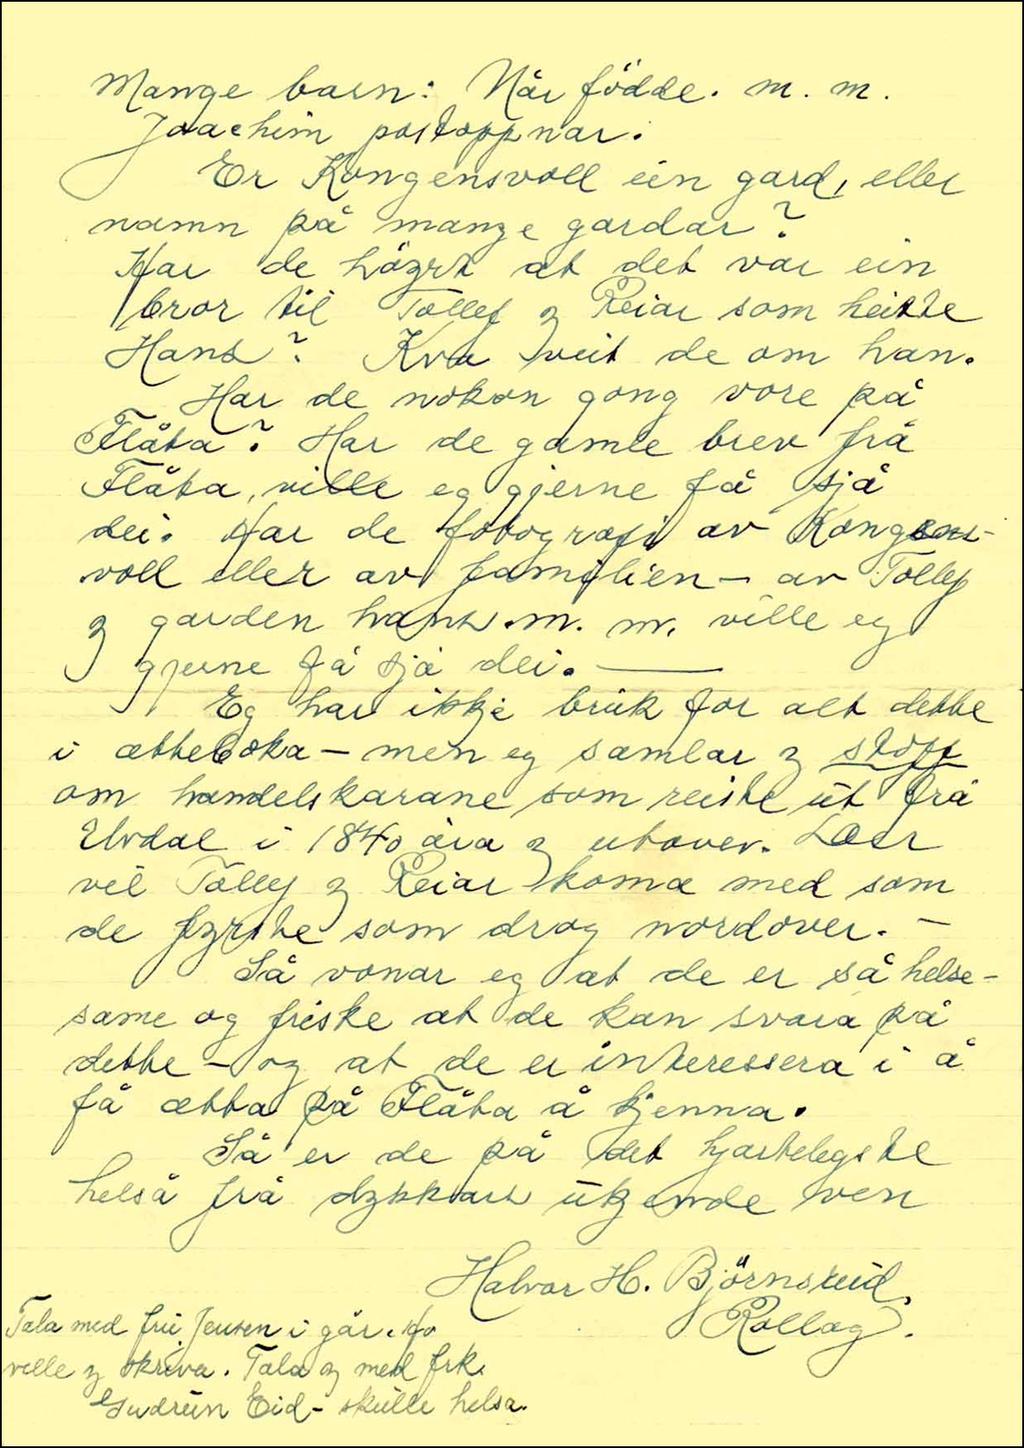 Mange barn: Når födde. m. m.
Joachim postoppnar.
Er Kongensvoll ein gard, eller
namn på mange gardar?
Har de höyrt at det var ein
bror til Tollef og Reiar som heitte
Hans? Kva veit de om han.
Har de nokon gong vore på
Flåta? Har de gamle brev frå
Flåta, ville eg gjerne få sjå
dei. Har de fotografi av Kongens-
voll eller av familien – av Tollef
og garden hans. m. m. ville eg
gjerne få sjå dei. —
Eg har ikkje bruk for alt dette
i ætteboka – men eg samlar og stoff
om handelskarane som reiste ut frå
Uvdal i 1840 åra og utover. Der
vil Tollef og Reiar koma med som
de fyrste som drog nordover. –
Så vonar eg at de er så helse-
same og friske at de kan svara på
dette – og at de er interessera i å
få ætta på Flåta å kjenna.
Så er de på det hjartelegste
helså frå dykkar ukjende ven
Halvor H. Björnsreid,
Rollag.
Tala med fru Jensen i går. Ho
ville og skriva. Tala og med frk.
Gudrun Eid – skulle helsa.